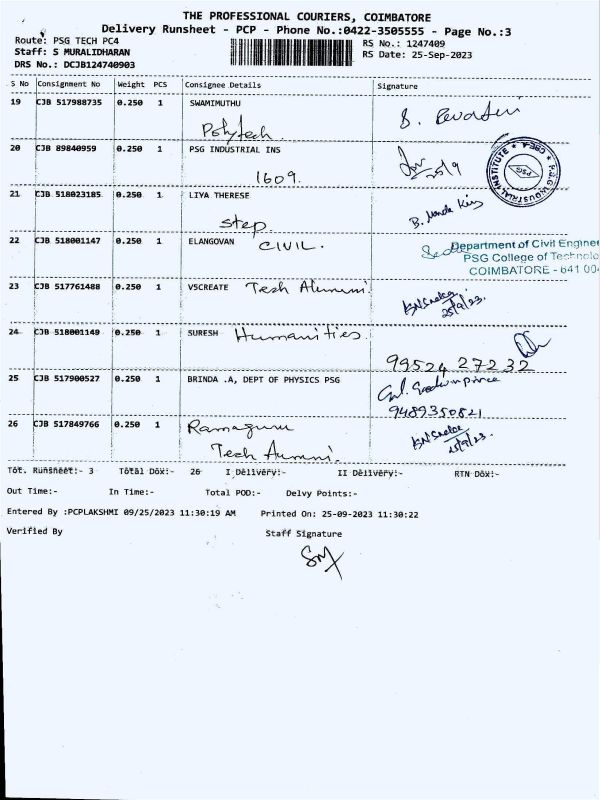 THE PROFESSIONAL COURIERS, COIMBATORE
Delivery Runsheet - PCP - Phone No.:0422-3505555 - Page No.:3
Route: PSG TECH PC4
RS No.: 1247409
Staff: S MURALIDHARAN
RS Date: 25-Sep-2023
DRS No.: DCJB124740903
S No Consignment No Weight PCS Consignee Details Signature
19 CJB 517988735 0.250 1 SWAMIMUTHU
Polytech.
20 CJB 89840959 0.250 1 PSG INDUSTRIAL INS
1609. 25/9
P.S.G INDUSTRIAL INSTITUTE
PSG
21 CJB 518023185 0.250 1 LIYA THERESE
Step.
22 CJB 518001147 0.250 1 ELANGOVAN CIVIL.
Department of Civil Enginee
PSG College of Technolo
COIMBATORE - 641 00
23 CJB 517761488 0.250 1 VSCREATE Tech Alumni
25/9/23.
24 CJB 518001149 0.250 1 SURESH Humanities.
99524 27232
25 CJB 517900527 0.250 1 BRINDA .A, DEPT OF PHYSICS PSG
9489350821
26 CJB 517849766 0.250 1 Ramaguru
Tech
25/9/23.
Tot. Runsheet:- 3 Total Dox:- 26 I Delivery:- II Delivery:- RTN Dox:-
Out Time:- In Time:- Total POD:- Delvy Points:-
Entered By :PCPLAKSHMI 09/25/2023 11:30:19 AM Printed On: 25-09-2023 11:30:22
Verified By Staff Signature